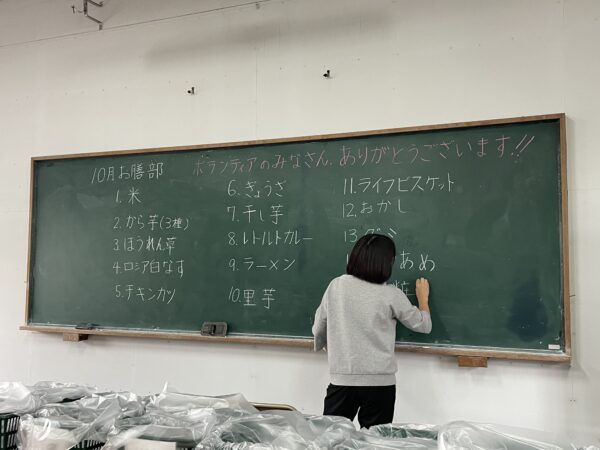 10月お膳部
ボランティアのみなさん、ありがとうございます!!
1. 米
2. から芋(3種)
3. ほうれん草
4. ロシア白なす
5. チキンカツ
6. ぎょうざ
7. 干し芋
8. レトルトカレー
9. ラーメン
10. 里芋
11. ライフビスケット
12. おかし
13.
あめ
粧